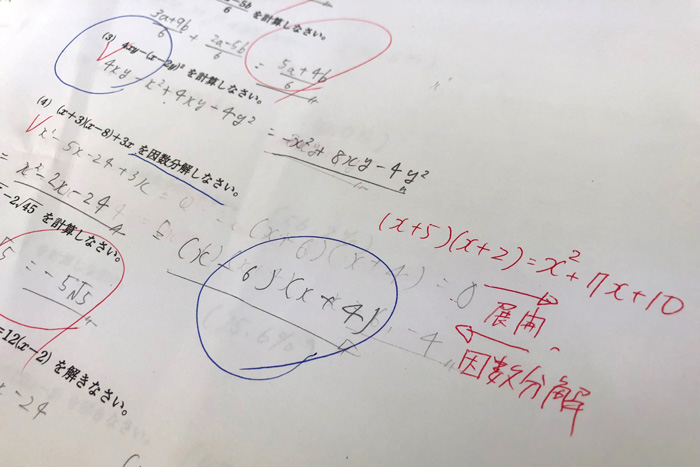 を計算しなさい。
3a+9b/6 + 2a-5b/6 = 5a+4b/6
(3) 4xy-(x-2y)²を計算しなさい。
4xy-x²+4xy-4y²
= -x²+8xy-4y²
(4) (x+3)(x-8)+3xを因数分解しなさい。
x²-5x-24+3x
= x²-2x-24
(x+6)(x+4)=0
= (x-6)(x+4)
-4
(x+5)(x+2)=x²+7x+10
展開
因数分解
-2√45 を計算しなさい。
= -5√5
=12(x-2) を解きなさい。
-24